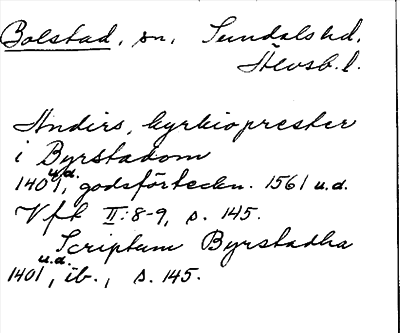 Bolstad, sn, Sundals hd.
Älvsb. l.
Andirs, kyrkioprester
i Byrstadom
u.d.
1401, godsförteckn. 1561 u.d.
Vft II:8-9, s. 145.
Scriptum Byrstadha
u.d.
1401, ib., s. 145.